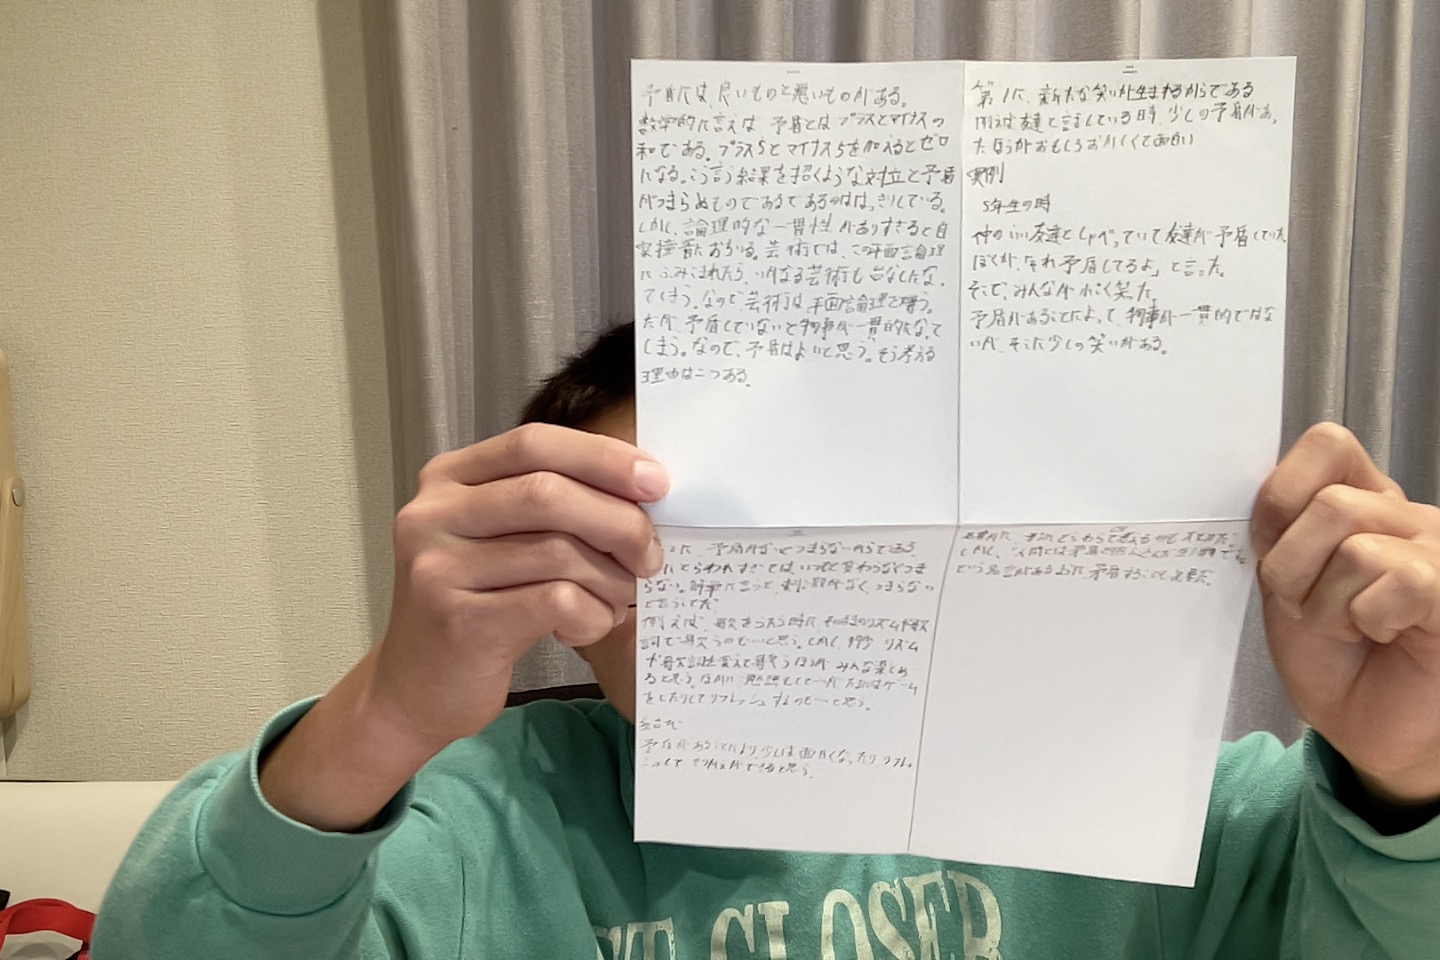 一
矛盾には、良いものと悪いものがある。
数学的に言えば 矛盾とは プラスとマイナスの
和である。プラス5とマイナス5を加えるとゼロ
になる。こう言う結果を招くような対立と矛盾
がつまらぬものであるのははっきりしている。
しかし、論理的な一貫性がありすぎると自
家撞着におちいる。芸術では、この平面論理
にふみこまれたら、いかなる芸術も台なしになっ
てしまう。なので、芸術は平面論理を嫌う。
だが、矛盾していないと物事が一貫的になって
しまう。なので、矛盾はよいと思う。そう考える
理由は二つある。
二
第1に、新たな笑いが生まれるからである
例えば友達と話している時、少しの矛盾があっ
たほうがおもしろおかしくて面白い
実例
5年生の時
仲のいい友達としゃべっていて友達が矛盾していた
ぼくが、「それ矛盾してるよ」と言った。
そこで、みんなが小さく笑た。
矛盾があることによって、物事が一貫的ではな
いが、そこに少しの笑いがある。
三
に、矛盾がないとつまらないからである。
にとらわれすぎては、いつもと変わらなくつま
らない。簡単に言うと、刺激がなく、つまらない
と言うことだ
例えば、歌をうたう時に、そのリズムや歌
詞で歌うのも一と思う。しかし、リズム
や歌詞を変えて歌うほうが みんな楽しめ
ると思う。ほかに 勉強もして一が たまにはゲーム
をしたりしてリフレッシュするのも一と思う。
矛盾があることにより、少しは面白くなったり、リフレッ
四
しかし、「人間とは矛盾の
という名言があるように、矛盾することも必要だ。
CLOSER